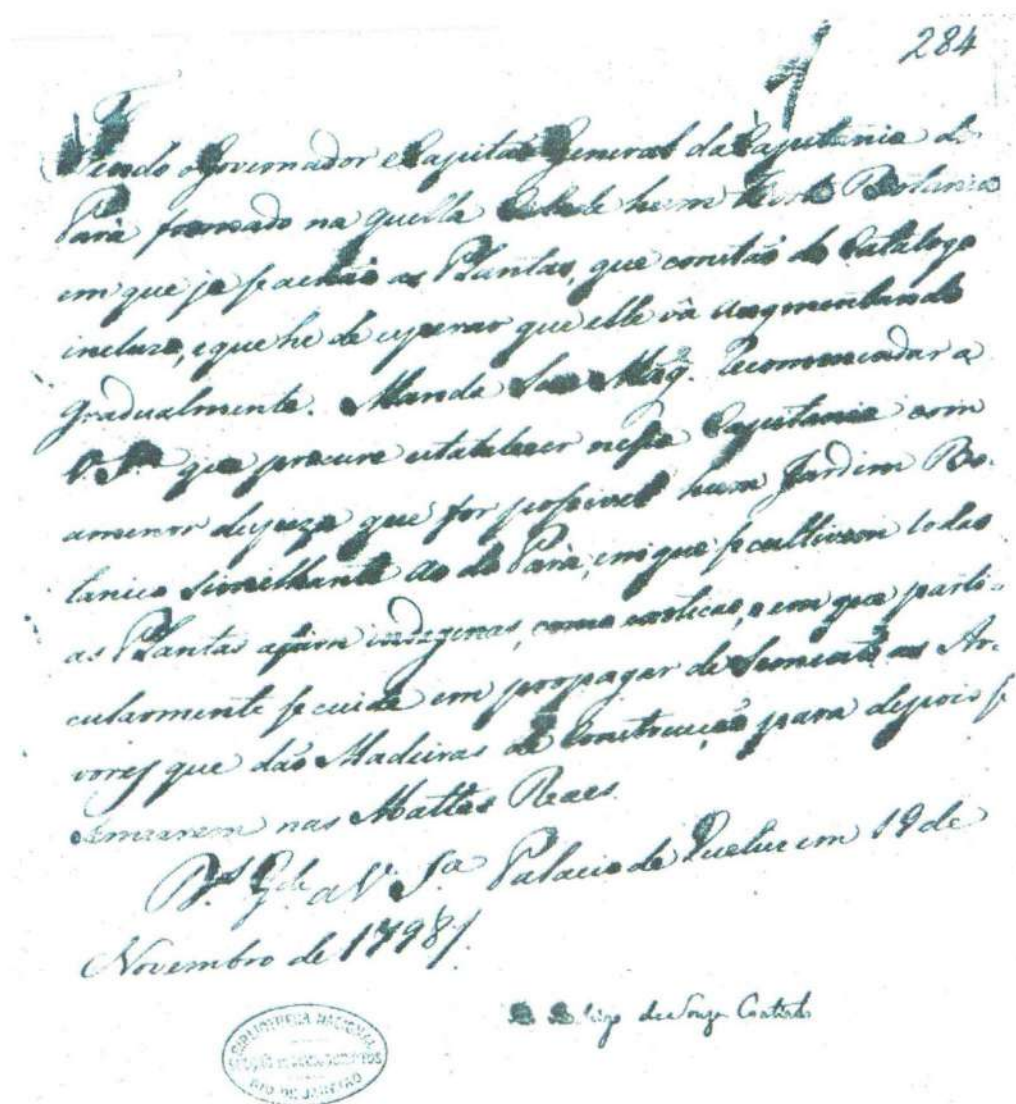 284
Tendo o Governador e Capitaõ General da Capitania do
Pará formado na quella Cidade hum Horto Botanico
em que já se achaõ as Plantas, que constaõ do Catalogo
incluzo, e que he de esperar que elle vá augmentando
gradualmente. Manda Sua Mag.e recomendar a
V. S.a que procure estabelecer nessa Capitania com
a menor despeza que for possivel hum Jardim Bo-
tanico similhante ao do Pará, em que se cultivem todas
as Plantas assim indigenas, como exoticas, e em que parti-
cularmente se cuide em propagar de Semente as Ar-
vores que daõ Madeiras de Construcçaõ para depois se
semearem nas Mattas Reaes.
D.s G.de a V. S.a Palacio de Queluz em 19 de
Novembro de 1798.
D. Rodrigo de Souza Coutinho
BIBLIOTHECA NACIONAL
RIO DE JANEIRO